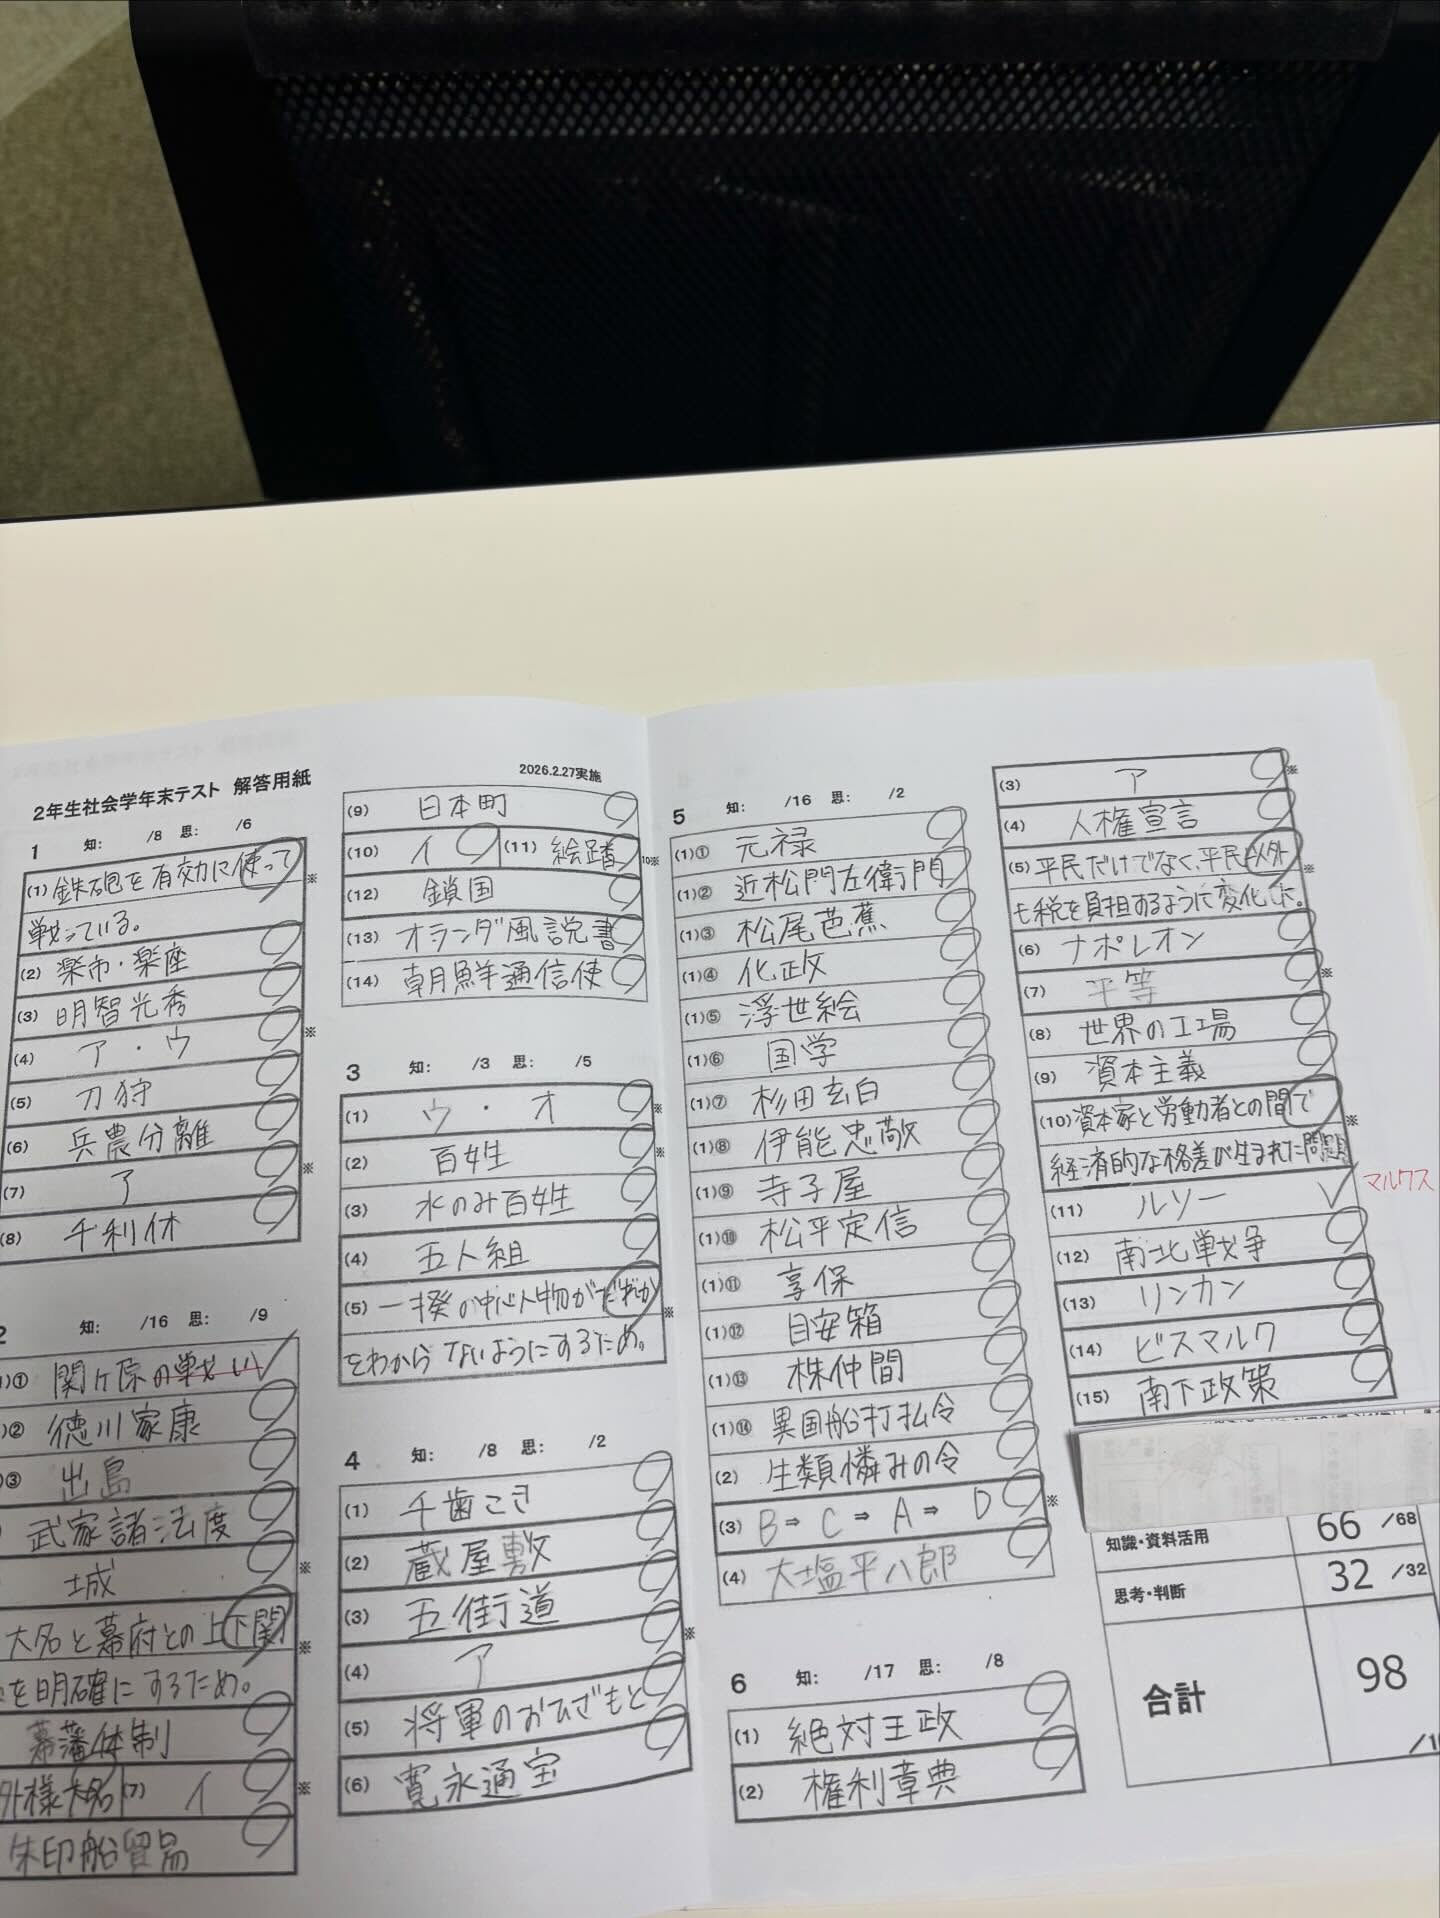 2年生社会学年末テスト 解答用紙
2026.2.27実施
1 知: /8 思: /6
(1) 鉄砲を有効に使って ※
戦っている。
(2) 楽市・楽座
(3) 明智光秀
(4) ア・ウ ※
(5) 刀狩
(6) 兵農分離
(7) ア ※
(8) 千利休
2 知: /16 思: /9
)① 関ヶ原の戦い
)② 徳川家康
)③ 出島
武家諸法度
城 ※
大名と幕府との上下関 ※
を明確にするため。
幕藩体制
外様大名 (7) イ ※
朱印船貿易
(9) 日本町
(10) イ (11) 絵踏 10※
(12) 鎖国
(13) オランダ風説書
(14) 朝鮮通信使
3 知: /3 思: /5
(1) ウ・オ ※
(2) 百姓 ※
(3) 水のみ百姓
(4) 五人組
(5) 一揆の中心人物がだれか ※
をわからないようにするため。
4 知: /8 思: /2
(1) 千歯こき
(2) 蔵屋敷
(3) 五街道
(4) ア ※
(5) 将軍のおひざもと
(6) 寛永通宝
5 知: /16 思: /2
(1)① 元禄
(1)② 近松門左衛門
(1)③ 松尾芭蕉
(1)④ 化政
(1)⑤ 浮世絵
(1)⑥ 国学
(1)⑦ 杉田玄白
(1)⑧ 伊能忠敬
(1)⑨ 寺子屋
(1)⑩ 松平定信
(1)⑪ 享保
(1)⑫ 目安箱
(1)⑬ 株仲間
(1)⑭ 異国船打払令
(2) 生類憐みの令
(3) B⇒C⇒A⇒D ※
(4) 大塩平八郎
6 知: /17 思: /8
(1) 絶対王政
(2) 権利章典
(3) ア ※
(4) 人権宣言
(5) 平民だけでなく、平民以外 ※
も税を負担するように変化した。
(6) ナポレオン
(7) 平等 ※
(8) 世界の工場
(9) 資本主義
(10) 資本家と労働者との間で ※
経済的な格差が生まれた問題
(11) ルソー マルクス
(12) 南北戦争
(13) リンカン
(14) ビスマルク
(15) 南下政策
知識・資料活用 66 /68
思考・判断 32 /32
合計 98